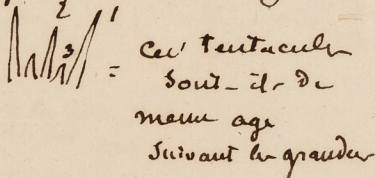 2 1
3 =
Ces tentacules
sont-ils de
meme age
suivant les grandeur